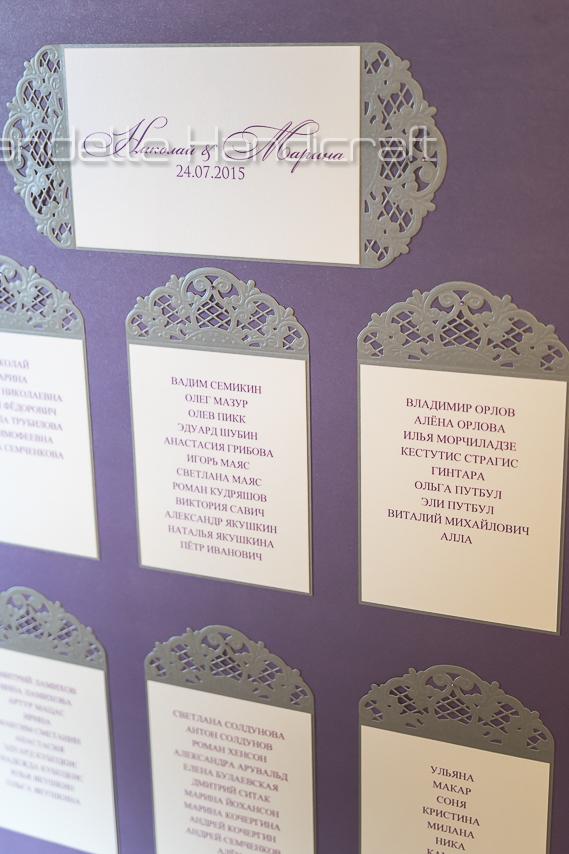 Handicraft
Николай & Марина
24.07.2015
НИКОЛАЕВНА
ФЁДОРОВИЧ
ТРУБИЛОВА
СЕМЧЕНКОВА
ВАДИМ СЕМИКИН
ОЛЕГ МАЗУР
ОЛЕВ ПИКК
ЭДУАРД ШУБИН
АНАСТАСИЯ ГРИБОВА
ИГОРЬ МАЯС
СВЕТЛАНА МАЯС
РОМАН КУДРЯШОВ
ВИКТОРИЯ САВИЧ
АЛЕКСАНДР ЯКУШКИН
НАТАЛЬЯ ЯКУШКИНА
ПЁТР ИВАНОВИЧ
ВЛАДИМИР ОРЛОВ
АЛЁНА ОРЛОВА
ИЛЬЯ МОРЧИЛАДЗЕ
КЕСТУТИС СТРАГИС
ГИНТАРА
ОЛЬГА ПУТБУЛ
ЭЛИ ПУТБУЛ
ВИТАЛИЙ МИХАЙЛОВИЧ
АЛЛА
ИРИНА
АНАСТАСИЯ
ИЛЬЯ ЯКУШКИН
ОЛЬГА ЯКУШКИНА
СВЕТЛАНА СОЛДУНОВА
АНТОН СОЛДУНОВ
РОМАН ХЕНСОН
АЛЕКСАНДРА АРУВАЛЬД
ЕЛЕНА БУЛАЕВСКАЯ
ДМИТРИЙ СИТАК
МАРИНА ЙОХАНСОН
МАРИНА КОЧЕРГИНА
АНДРЕЙ КОЧЕРГИН
АНДРЕЙ СЕМЧЕНКОВ
УЛЬЯНА
МАКАР
СОНЯ
КРИСТИНА
МИЛАНА
НИКА